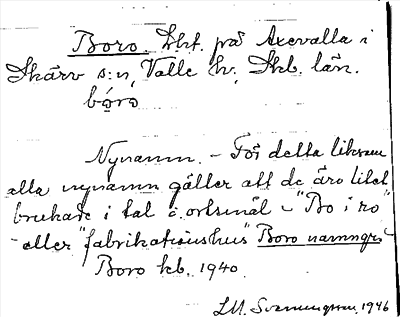 Boro. Lht. på Axevalla i
Skärv s:n, Valle hd, Skb. län.
bo̱ro
Nynamn. – För detta liksom
alla nynamn gäller att de äro litet
brukade i tal o. ortsmål – "Bo i ro"
– eller "fabrikationshus" Boro namngs
Boro kb. 1940.
1946